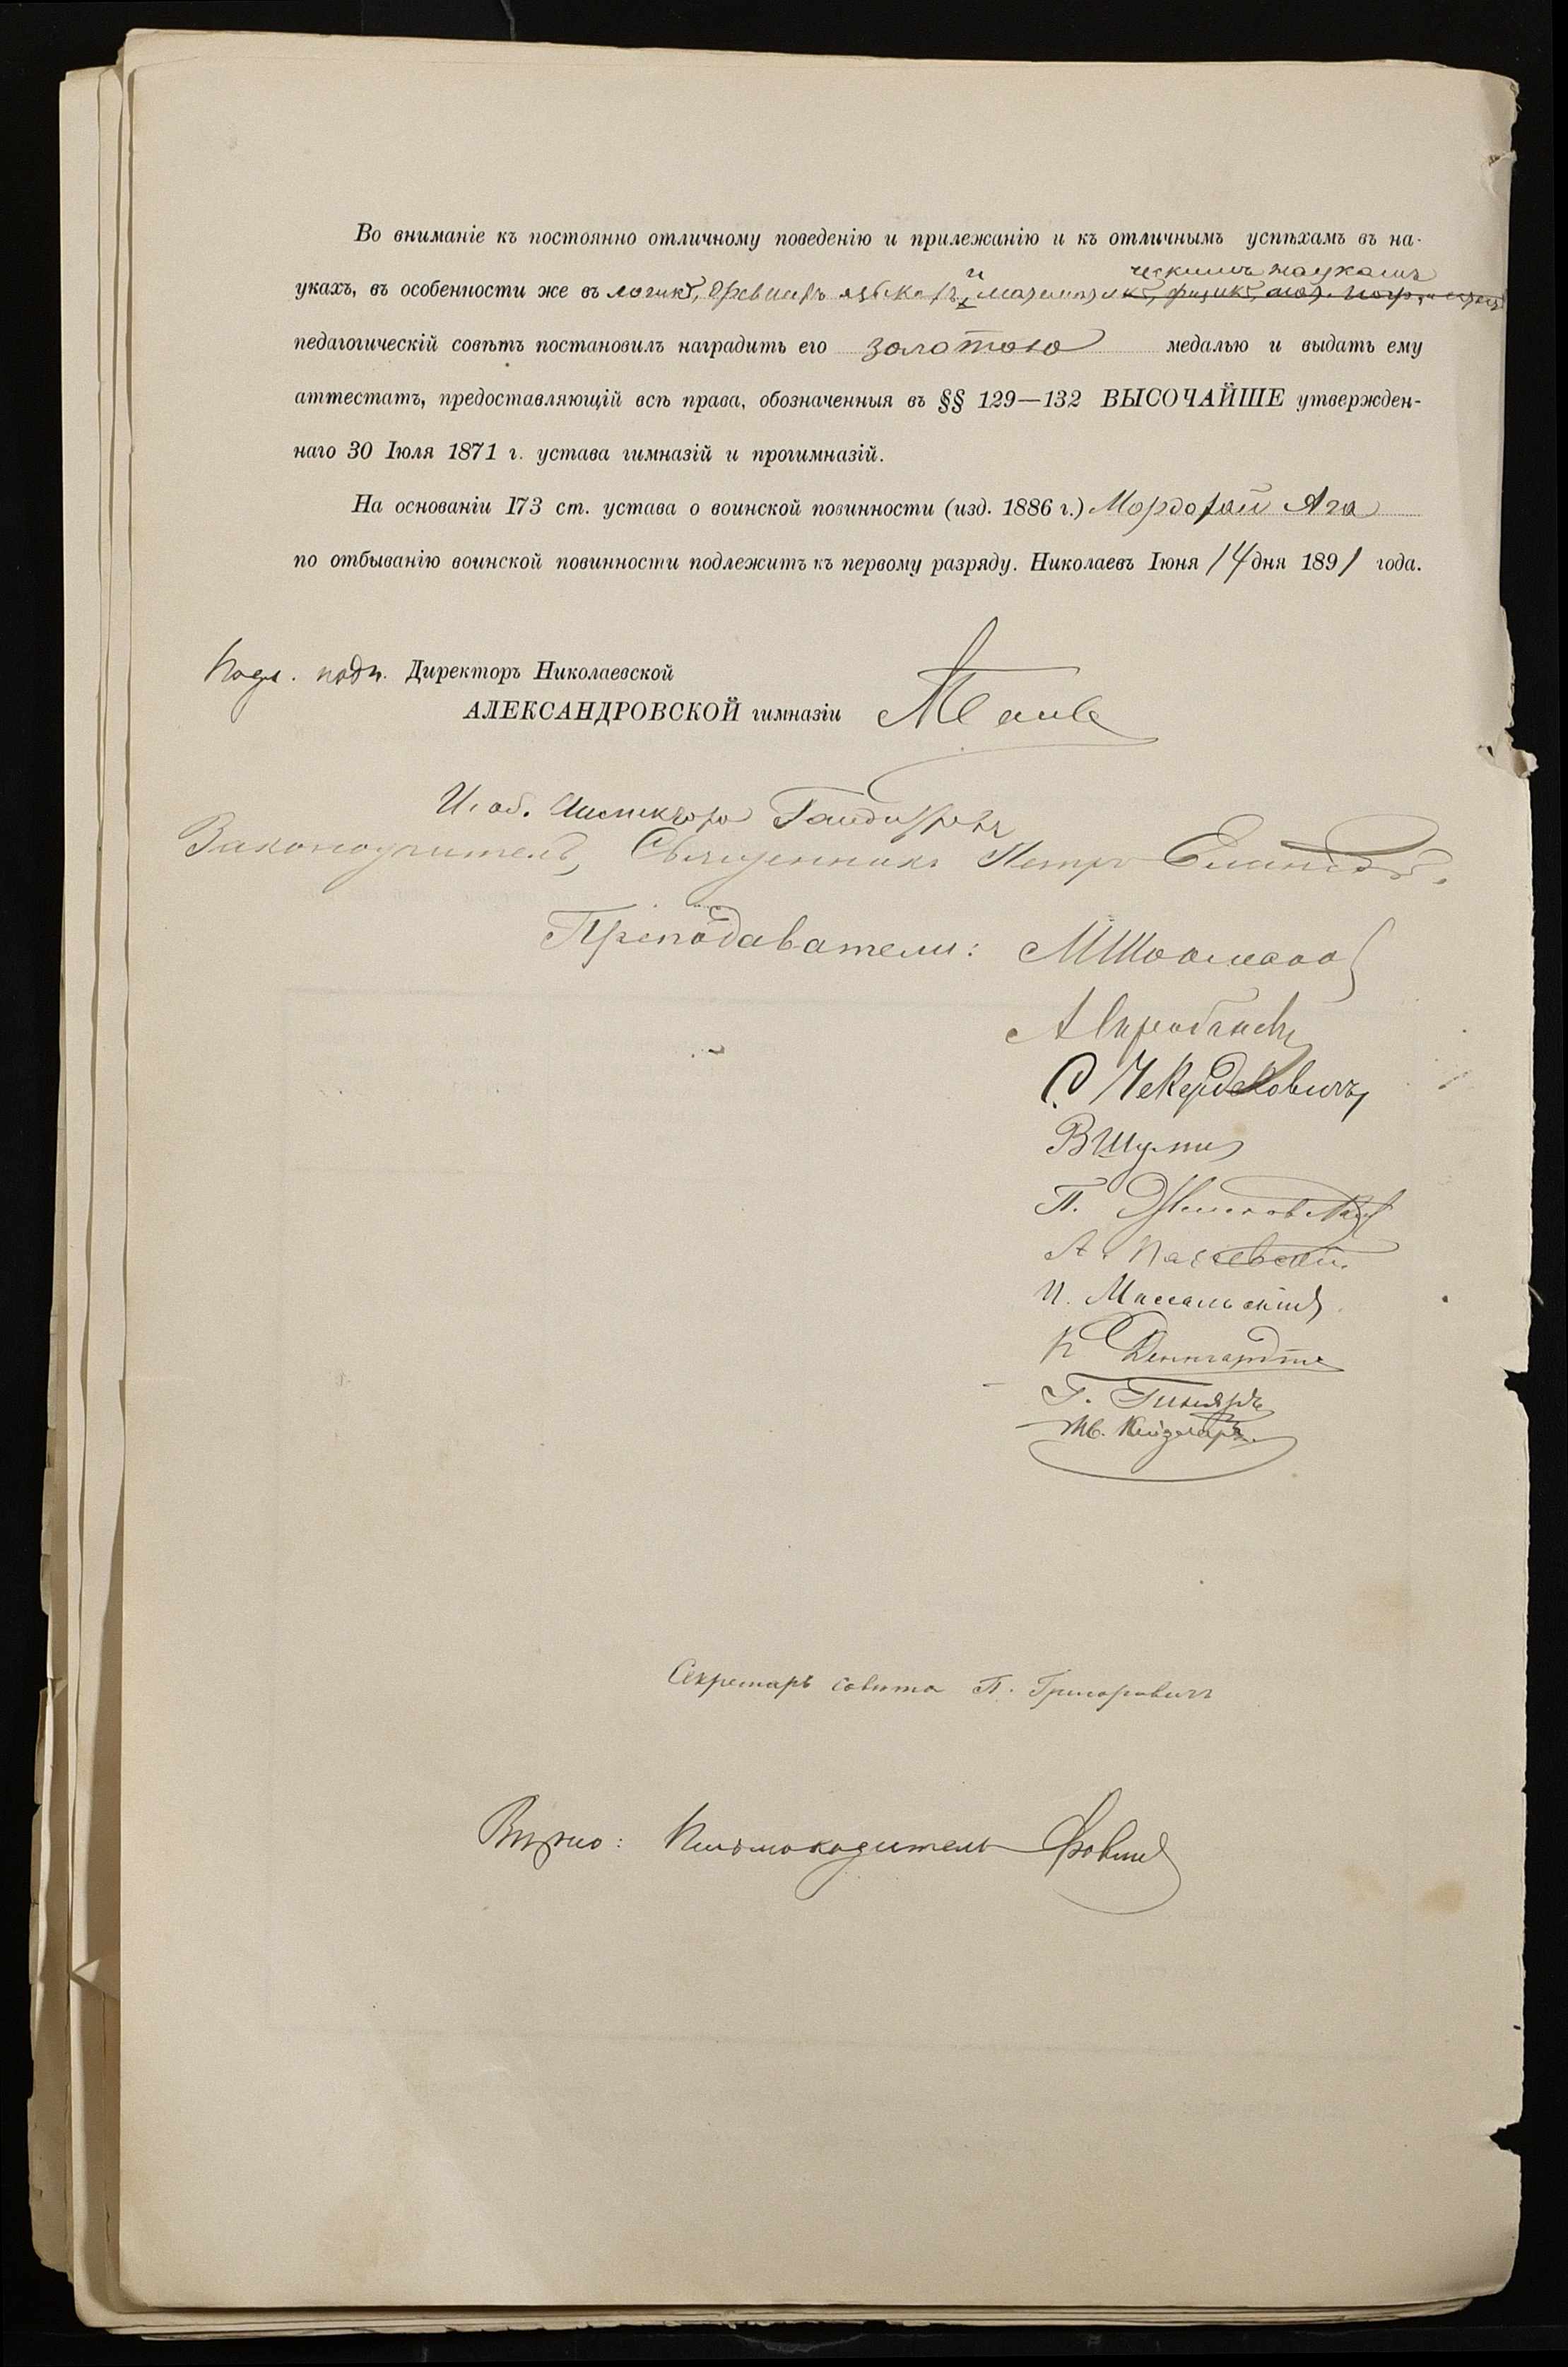 Во вниманіе къ постоянно отличному поведенію и прилежанію и къ отличнымъ успѣхамъ въ на-
ческимъ наукамъ
укахъ, въ особенности же въ логикѣ, древнихъ языкахъ и математикѣ, физикѣ, мат.
педагогическій совѣтъ постановилъ наградить его золотою медалью и выдать ему
аттестатъ, предоставляющій всѣ права, обозначенныя въ §§ 129—132 ВЫСОЧАЙШЕ утвержден-
наго 30 Іюля 1871 г. устава гимназій и прогимназій.
На основаніи 173 ст. устава о воинской повинности (изд. 1886 г.) Мордохай Ага
по отбыванію воинской повинности подлежитъ къ первому разряду. Николаевъ Іюня 14 дня 1891 года.
Подл. подп. Директоръ Николаевской
АЛЕКСАНДРОВСКОЙ гимназіи
И. об. Инспектора
Законоучитель, Священникъ Петръ
Преподаватели:
С Чекердековичъ
В
П.
А.
И. Массальскій
К Деннгардтъ
Г.
Секретарь совѣта П. Григоровичъ
Вѣрно: Письмоводитель